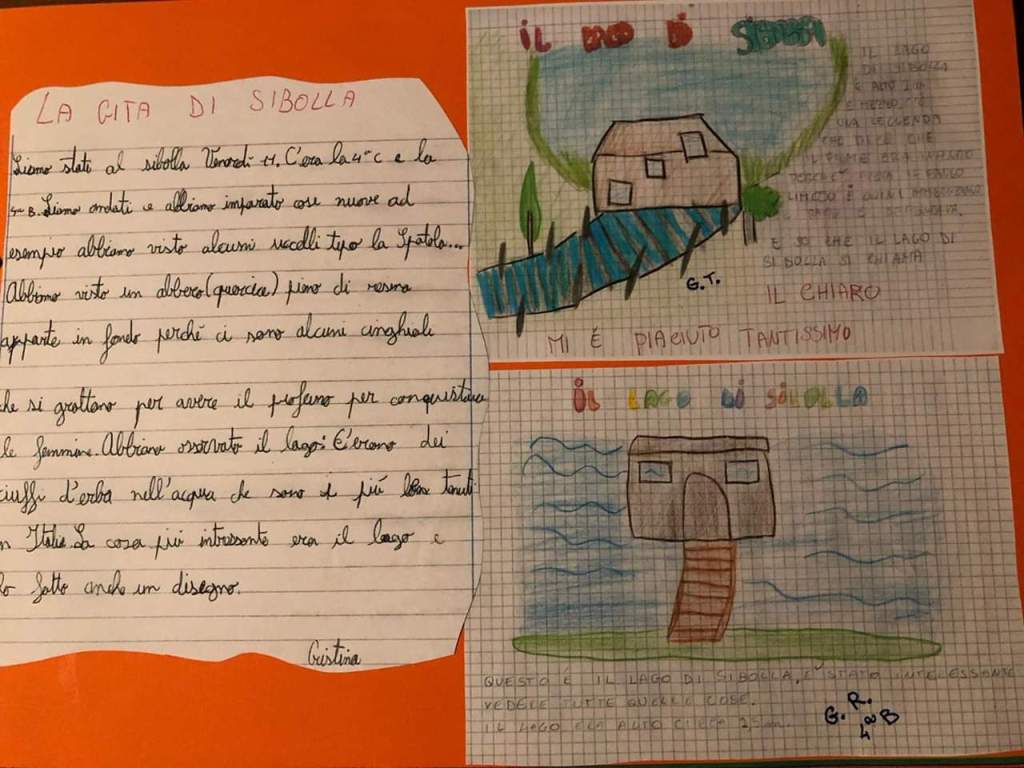 LA GITA DI SIBOLLA
Siamo stati al sibolla Venerdi 11. C'era la 4ª C e la
5ª B. Siamo andati e abbiamo imparato cose nuove ad
esempio abbiamo visto alcuni uccelli tipo la Spatola...
Abbiamo visto un abbero (quercia) pieno di resina
apparte in fondo perché ci sono alcuni cinghiali
che si grattano per avere il profumo per conquistare
le femmine. Abbiamo osservato il lago: C'erano dei
ciuffi d'erba nell'acqua che sono i più tenuti
in Italia La cosa più intressante era il lago e
ho fatto anche un disegno.
Cristina
IL LAGO DI SIBOLLA
IL LAGO
DI SIBOLLA
E ALTO
E MEZZO
UNA LEGGENDA
CHE DICE CHE
IL FIUME ERA
FANGO
E SO CHE IL LAGO DI
SIBOLLA SI CHIAMA
IL CHIARO
G.T.
MI È PIACIUTO TANTISSIMO
IL LAGO DI SIBOLLA
QUESTO È IL LAGO DI SIBOLLA, È STATO INTERESSANTE
VEDERE TUTTE QUELLE COSE.
IL LAGO ERA ALTO CIRCA 2,5 m.
G. R.
4ª B